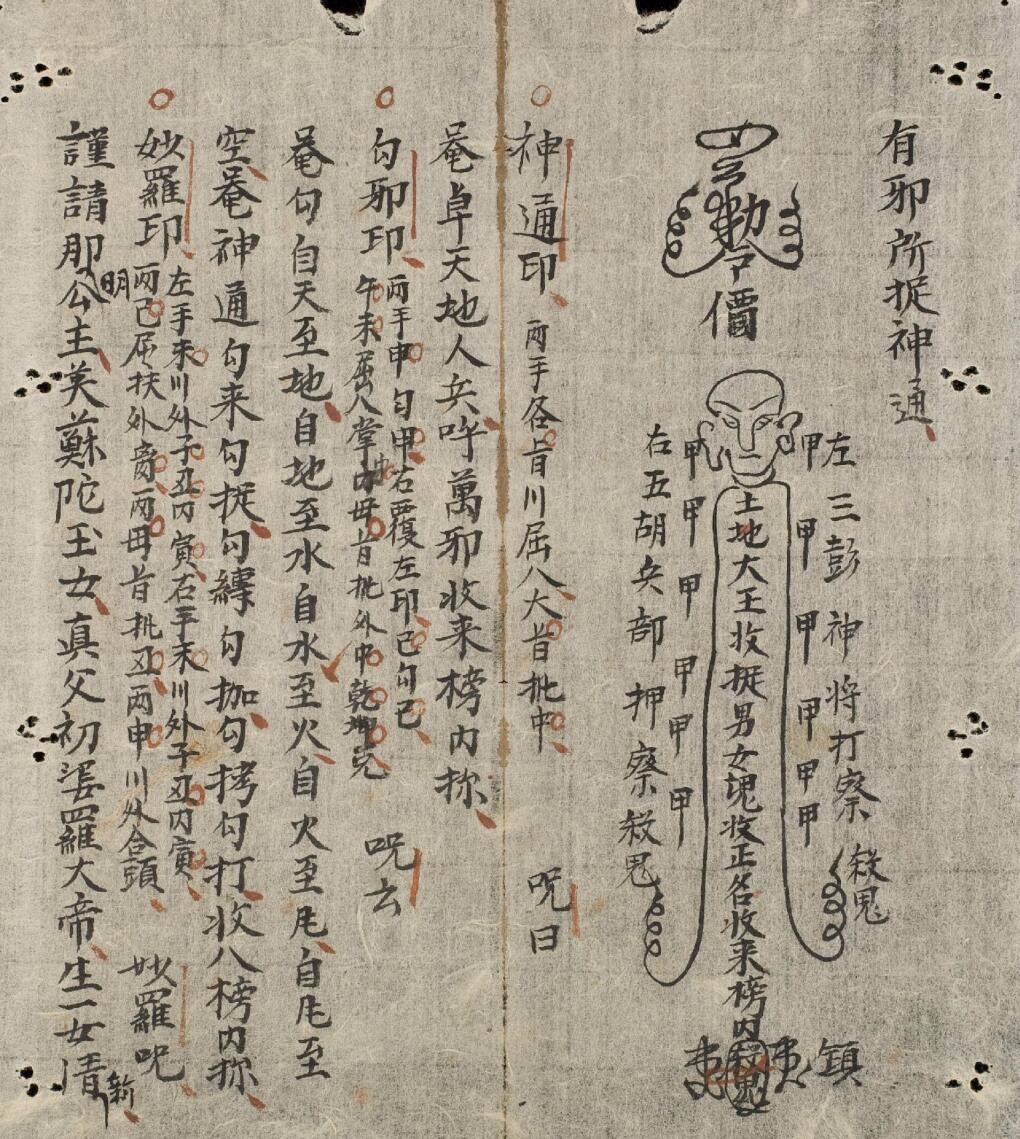 有邪所捉神通
勅令
價
左三彭神将打察殺鬼
甲甲甲甲甲甲
土地大王收捉男女塊收正名收来榜内
鎮
甲甲甲甲甲甲
右五胡兵部押察殺鬼
神通印 两手各旨川屈八大旨批中 呪曰
奄卓天地人兵吽萬邪收来榜内㧱
勾邪印 两手申勾甲右覆左印己勾己
午未屈八掌内毋旨批外中乾坤兑 呪云
奄勾自天至地自地至水自水至火自火至𠂪自𠂪至
空奄神通勾来勾捉勾縛勾枷勾拷勾打收八榜内㧱
妙羅印 左手未川外子丑内寅右手未川外子丑内寅
两己屈扶外 两毋旨批丑两申川外合頭 妙羅呪
謹請那公主美蘇陀玉女真父初婆羅大帝生一女清
明
新